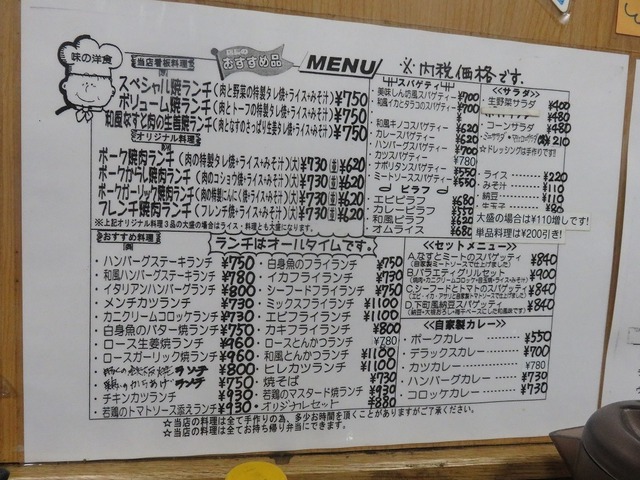 味の洋食
☆当店看板料理
店長の
おすすめ品
MENU
※内税価格です.
スペシャル焼ランチ(肉と野菜の特製タレ焼+ライス+みそ汁)¥750
ボリューム焼ランチ(肉とトーフの特製タレ焼+ライス+みそ汁)¥750
和風なすと肉の生姜焼ランチ(肉となすのさっぱり生姜タレ焼+ライス+みそ汁)¥750
☆オリジナル料理
ポーク焼肉ランチ(肉の特製タレ焼+ライス+みそ汁)(大)¥730(並)¥620
ポークからし焼ランチ(肉のコショウ焼+ライス+みそ汁)(大)¥730(並)¥620
ポークガーリック焼ランチ(肉の特製にんにく焼+ライス+みそ汁)(大)¥730(並)¥620
フレンチ焼肉ランチ(フレンチ焼+ライス+みそ汁)(大)¥730(並)¥620
※上記オリジナル料理3品の大盛の場合はライス・料理とも大盛になります。
スパゲティ
美味しん坊風スパゲティー ¥700
和風イカとタラコのスパゲティー ¥700
和風キノコスパゲティー ¥620
カレースパゲティー ¥620
ハンバーグスパゲティー ¥700
カツスパゲティー ¥780
ナポリタンスパゲティー ¥550
ミートソーススパゲティー ¥550
ピラフ
エビピラフ ¥680
カレーピラフ ¥550
和風ピラフ ¥620
オムライス ¥680
<<サラダ>>
生野菜サラダ ¥400
¥480
コーンサラダ ¥480
¥210
☆ドレッシングは手作りです!!
ライス ¥220
みそ汁 ¥110
納豆 ¥110
生玉子 ¥80
大盛の場合は¥110増しです!
単品料理は¥200引き!
おすすめ料理
ランチはオールタイムです。
・ハンバーグステーキランチ ¥750
・和風ハンバーグランチ ¥780
・イタリアンハンバーグランチ ¥800
・メンチカツランチ ¥730
・カニクリームコロッケランチ ¥730
・白身魚のバター焼ランチ ¥750
・ロース生姜焼ランチ ¥960
・ロースガーリック焼ランチ ¥960
ランチ ¥800
・鶏のからあげランチ ¥750
・チキンカツランチ ¥930
・若鶏のトマトソース添えランチ ¥930
・白身魚のフライランチ ¥750
・イカフライランチ ¥730
・シーフードフライランチ ¥750
・ミックスフライランチ ¥1100
・エビフライランチ ¥1100
・カキフライランチ ¥800
・ロースとんかつランチ ¥780
・和風とんかつランチ ¥1100
・ヒレカツランチ ¥1100
・焼そば ¥730
・若鶏のマスタード焼ランチ ¥930
・オリジナルセット ¥880
☆当店の料理は全て手作りの為、多少お時間を頂くことがありますがご了承ください。
☆当店の料理は全てお持ち帰り弁当にできます。
<<セットメニュー>>
A.なすとミートのスパゲッティ ¥840
(自家製ミートソースで仕上げました)
B.バラエティグリルセット ¥900
(焼肉・カニクリームコロッケ・目玉焼・ライス・みそ汁)
C.シーフードとトマトのスパゲッティ ¥840
(エビ・イカ・アサリと自家製トマトソースで仕上げました)
D.下町風納豆スパゲッティ ¥840
(納豆・大根おろし・梅干ベースにした和風味です)
<<自家製カレー>>
・ポークカレー ¥550
・デラックスカレー ¥700
・カツカレー ¥780
・ハンバーグカレー ¥730
・コロッケカレー ¥730